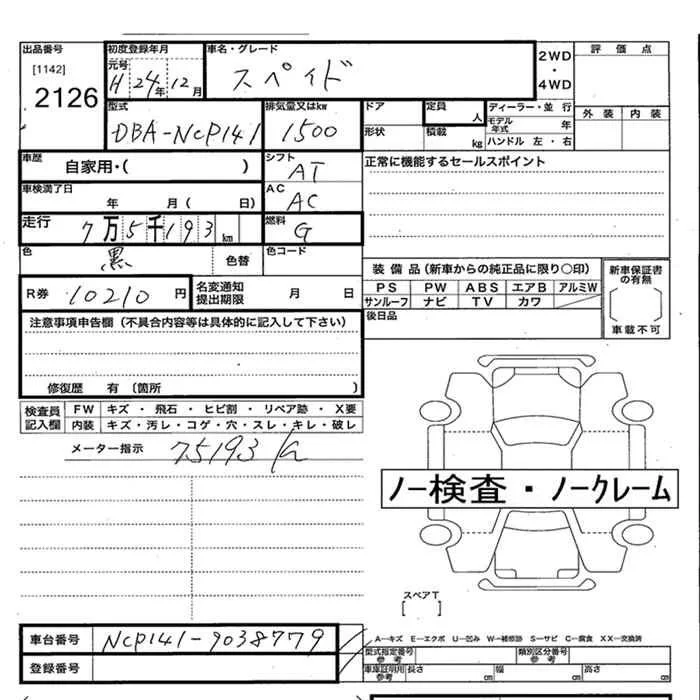 出品番号 初度登録年月 車名・グレード 評価点
[1142] 元号 2WD
2126 H 24年 12月 スペイド ・
4WD
型式 排気量又はkw ドア 定員 人 ディーラー・並行 外装 内装
DBA-NCP141 1500 形状 積載 kg モデル年式 年
ハンドル 左・右
車歴 自家用・( ) シフト AT 正常に機能するセールスポイント
車検満了日 年 月( 日) AC AC
走行 7万5千193km 燃料 G
色 黒 色替 色コード
R券 10210円 名変通知提出期限 月 日
装備品(新車からの純正品に限り〇印) 新車保証書の有無
PS PW ABS エアB アルミW
サンルーフ ナビ TV カワ
後日品 車載不可
注意事項申告欄(不具合内容等は具体的に記入して下さい)
修復歴 有(箇所 )
検査員記入欄 FW キズ・飛石・ヒビ割・リペア跡・X要
内装 キズ・汚レ・コゲ・穴・スレ・キレ・破レ
メーター指示 75193k
ノー検査・ノークレーム
スペアT
[ ]
車台番号 NCP141-9038779
A―キズ E―エクボ U―凹み W―補修跡 S―サビ C―腐食 XX―交換済
登録番号
型式指定番号 参考 類別区分番号 参考
車庫証明用 参考 長さ cm 幅 cm 高さ cm